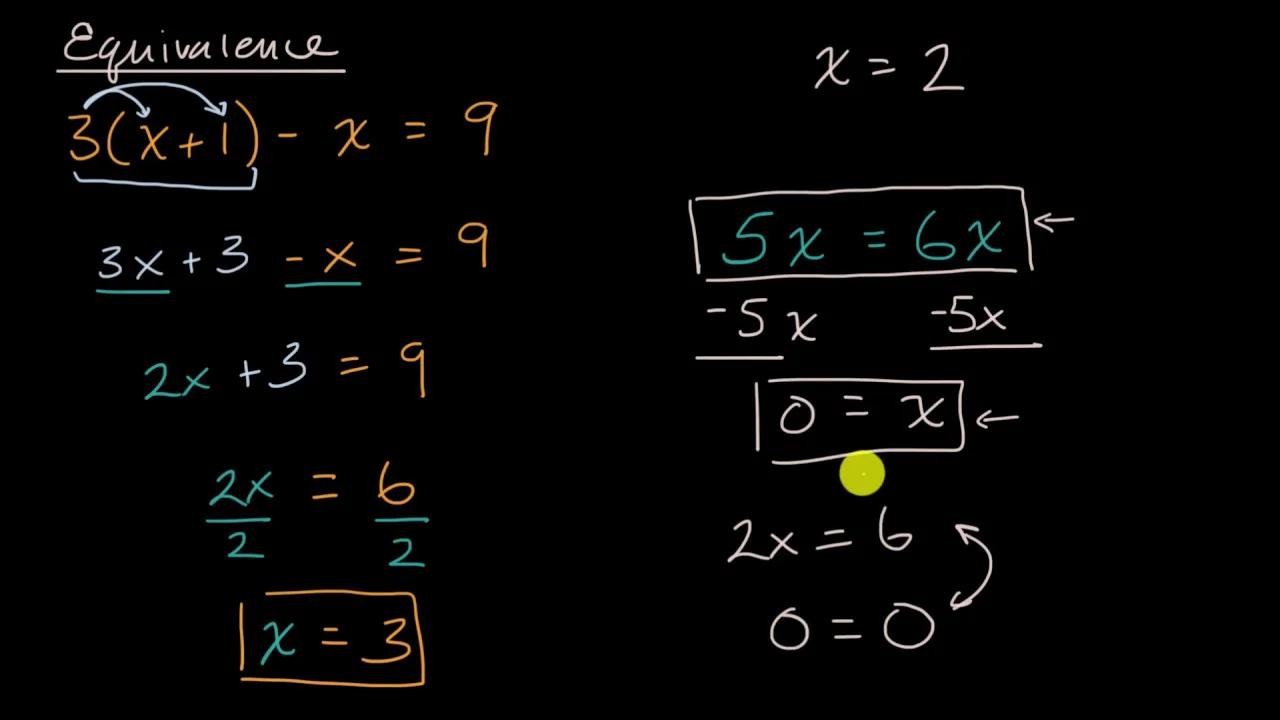 Equivalence
3(x+1) - x = 9
3x + 3 - x = 9
2x + 3 = 9
2x = 6
2 2
x = 3
x = 2
5x = 6x
-5x -5x
0 = x
2x = 6
0 = 0